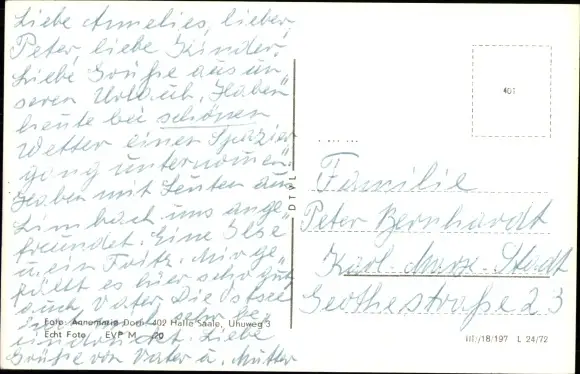 Liebe Annelies, lieber
Peter, liebe Kinder,
Liebe Grüße aus un"
seren Urlaub. Haben
heute bei schönen
Wetter einen Spazier
gang unternomen.
Haben mit Leuten aus
Limbach uns ange"
freundet. Eine Ilse
u. ein Fritz. Mir ge"
fällt es hier sehr gut
auch Vater. Die Ostsee
sehr be"
eindruckt. Liebe
Grüße von Vater u. Mutter
Foto: Annemarie Dorn 402 Halle Saale, Uhuweg 3
Echt Foto EVP M -,20
DTVL
401
Familie
Peter Bernhardt
Karl-Marx-Stadt
Goethestraße 23
III/18/197 L 24/72